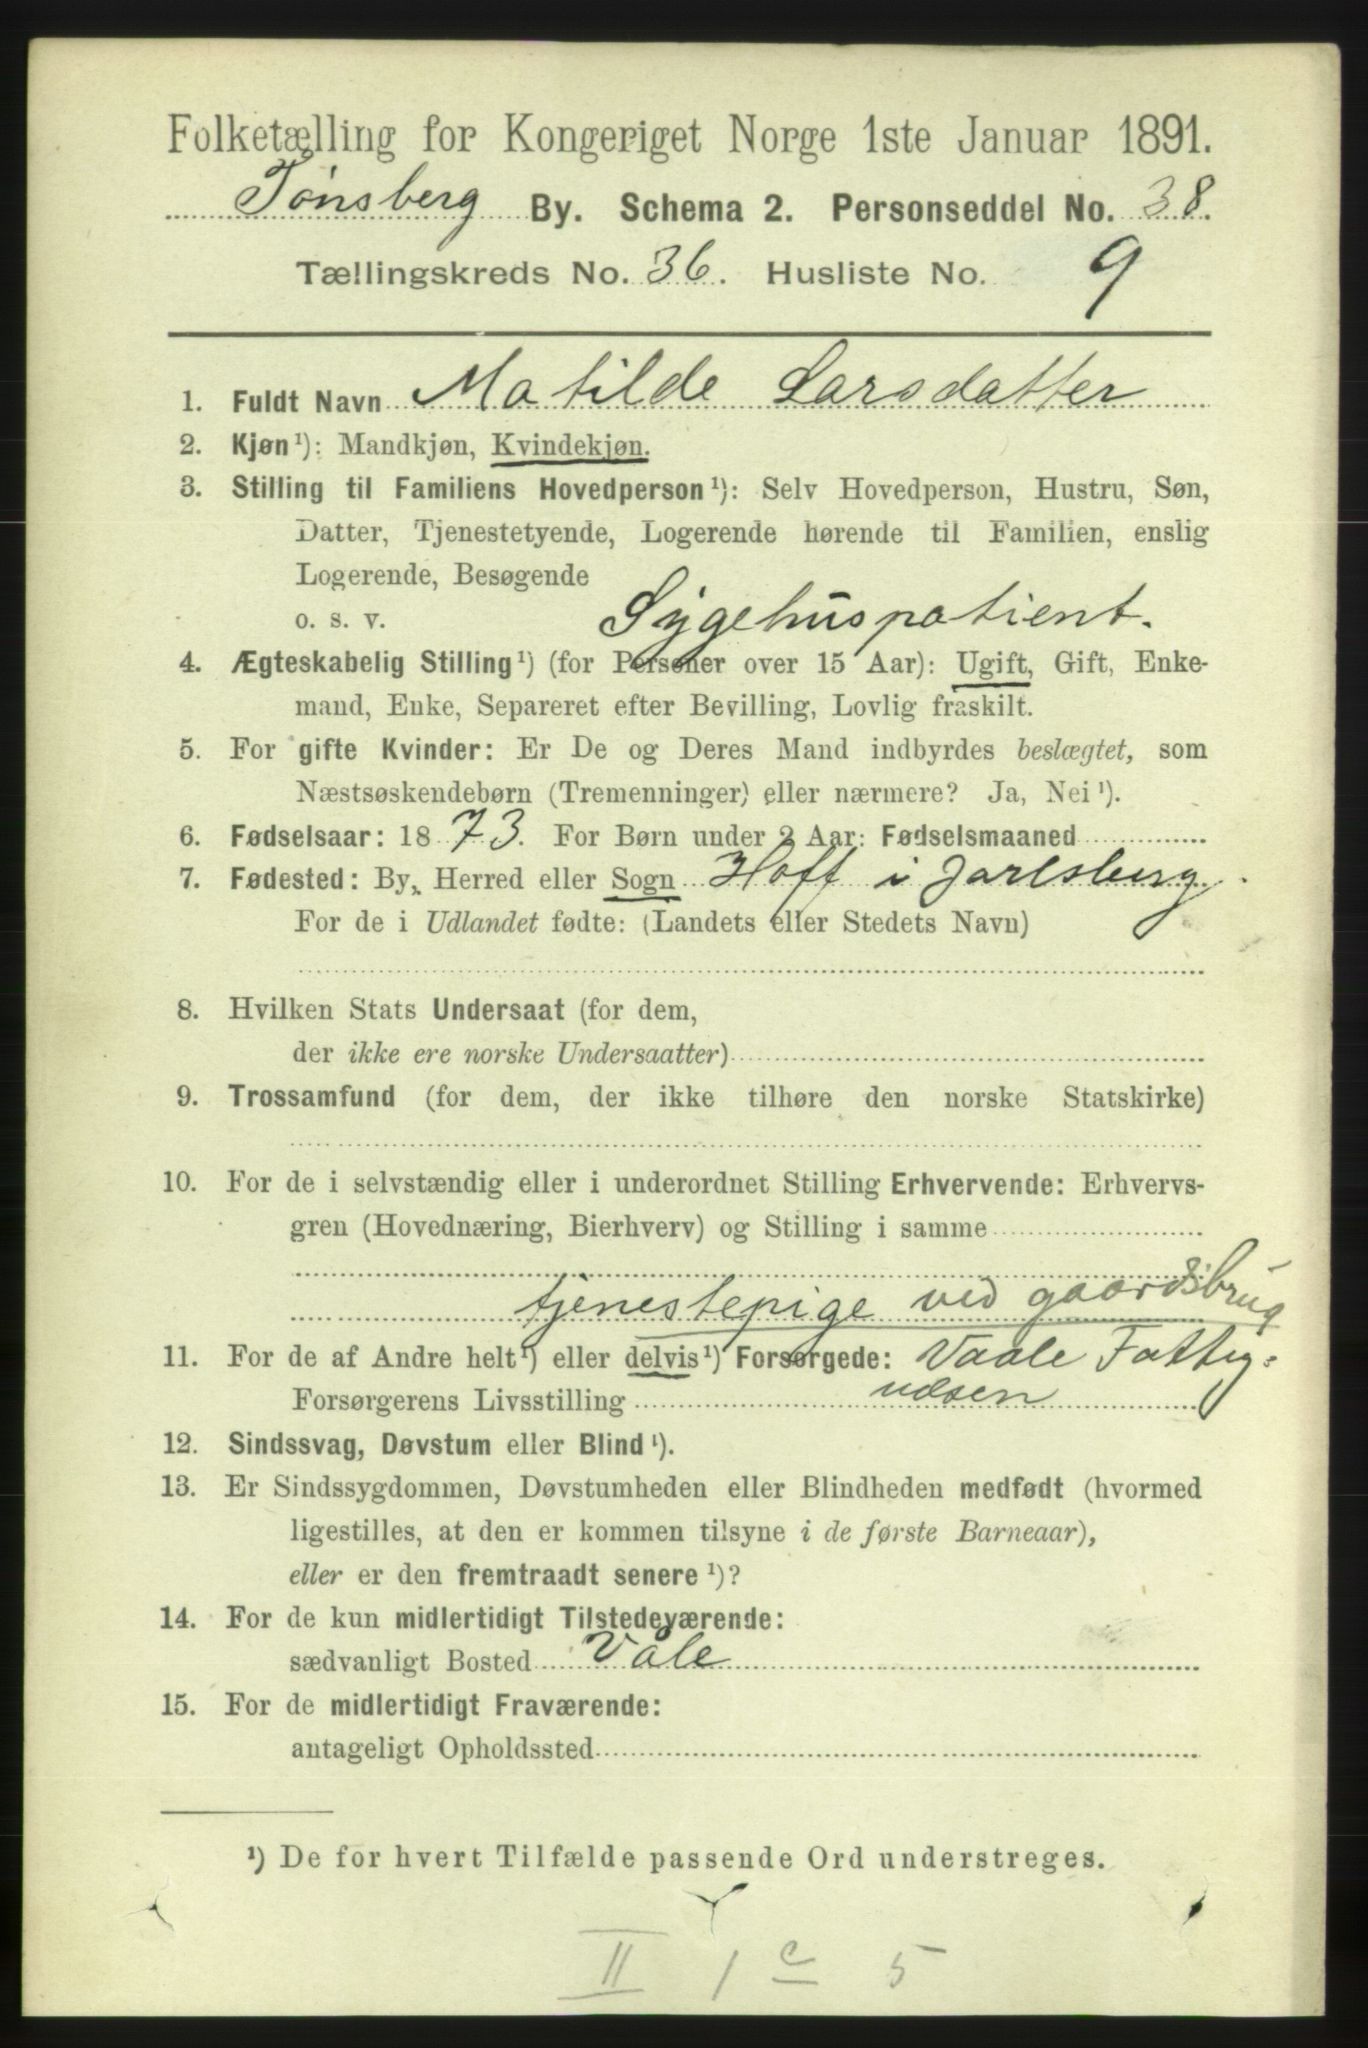 Folketælling for Kongeriget Norge 1ste Januar 1891.
Tønsberg By. Schema 2. Personseddel No. 38.
Tællingskreds No. 36. Husliste No. 9
1. Fuldt Navn Matilde Larsdatter
2. Kjøn¹): Mandkjøn, Kvindekjøn.
3. Stilling til Familiens Hovedperson¹): Selv Hovedperson, Hustru, Søn,
Datter, Tjenestetyende, Logerende hørende til Familien, enslig
Logerende, Besøgende
o. s. v. Sygehuspatient.
4. Ægteskabelig Stilling¹) (for Personer over 15 Aar): Ugift, Gift, Enke-
mand, Enke, Separeret efter Bevilling, Lovlig fraskilt.
5. For gifte Kvinder: Er De og Deres Mand indbyrdes beslægtet, som
Næstsøskendebørn (Tremenninger) eller nærmere? Ja, Nei¹).
6. Fødselsaar: 1873. For Børn under 2 Aar: Fødselsmaaned
7. Fødested: By, Herred eller Sogn Hoff i Jarlsberg.
For de i Udlandet fødte: (Landets eller Stedets Navn)
8. Hvilken Stats Undersaat (for dem,
der ikke ere norske Undersaatter)
9. Trossamfund (for dem, der ikke tilhøre den norske Statskirke)
10. For de i selvstændig eller i underordnet Stilling Erhvervende: Erhvervs-
gren (Hovednæring, Bierhverv) og Stilling i samme
tjenestepige ved gaardsbrug
11. For de af Andre helt¹) eller delvis¹) Forsørgede: Vaale Fattig-
Forsørgerens Livsstilling væsen
12. Sindssvag, Døvstum eller Blind¹).
13. Er Sindssygdommen, Døvstumheden eller Blindheden medfødt (hvormed
ligestilles, at den er kommen tilsyne i de første Barneaar),
eller er den fremtraadt senere¹)?
14. For de kun midlertidigt Tilstedeværende:
sædvanligt Bosted Våle
15. For de midlertidigt Fraværende:
antageligt Opholdssted
¹) De for hvert Tilfælde passende Ord understreges.
II 1 c 5